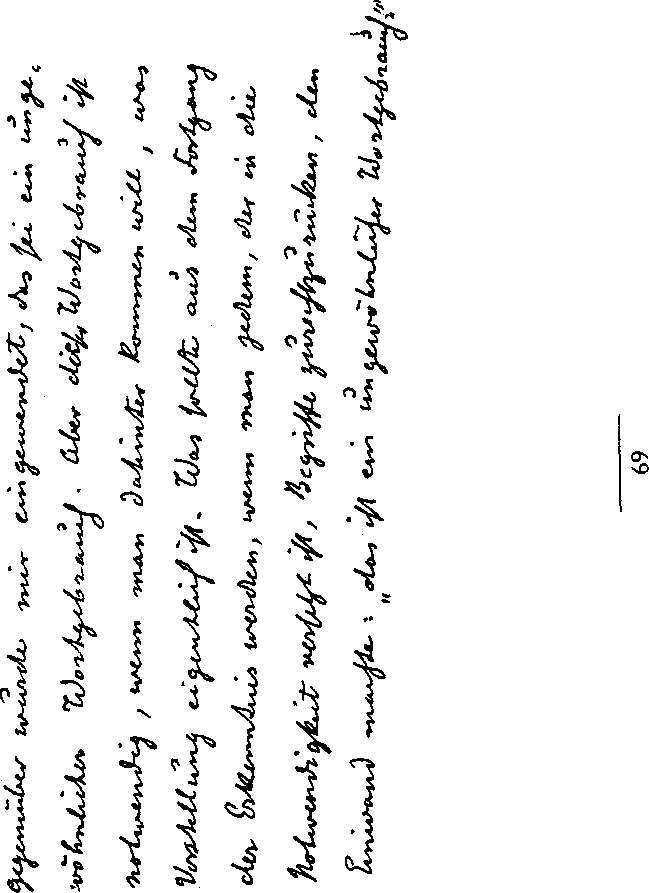 gegenüber wurde mir eingewendet, das sei ein unge-
wöhnlicher Wortgebrauch. Aber dieser Wortgebrauch ist
notwendig, wenn man dahinter kommen will, was
Vorstellung eigentlich ist. Was sollte aus dem Fortgang
der Erkenntnis werden, wenn man jedem, der in die
Notwendigkeit versetzt ist, Begriffe zurechtzurücken, den
Einwand machte: „das ist ein ungewöhnlicher Wortgebrauch."
69